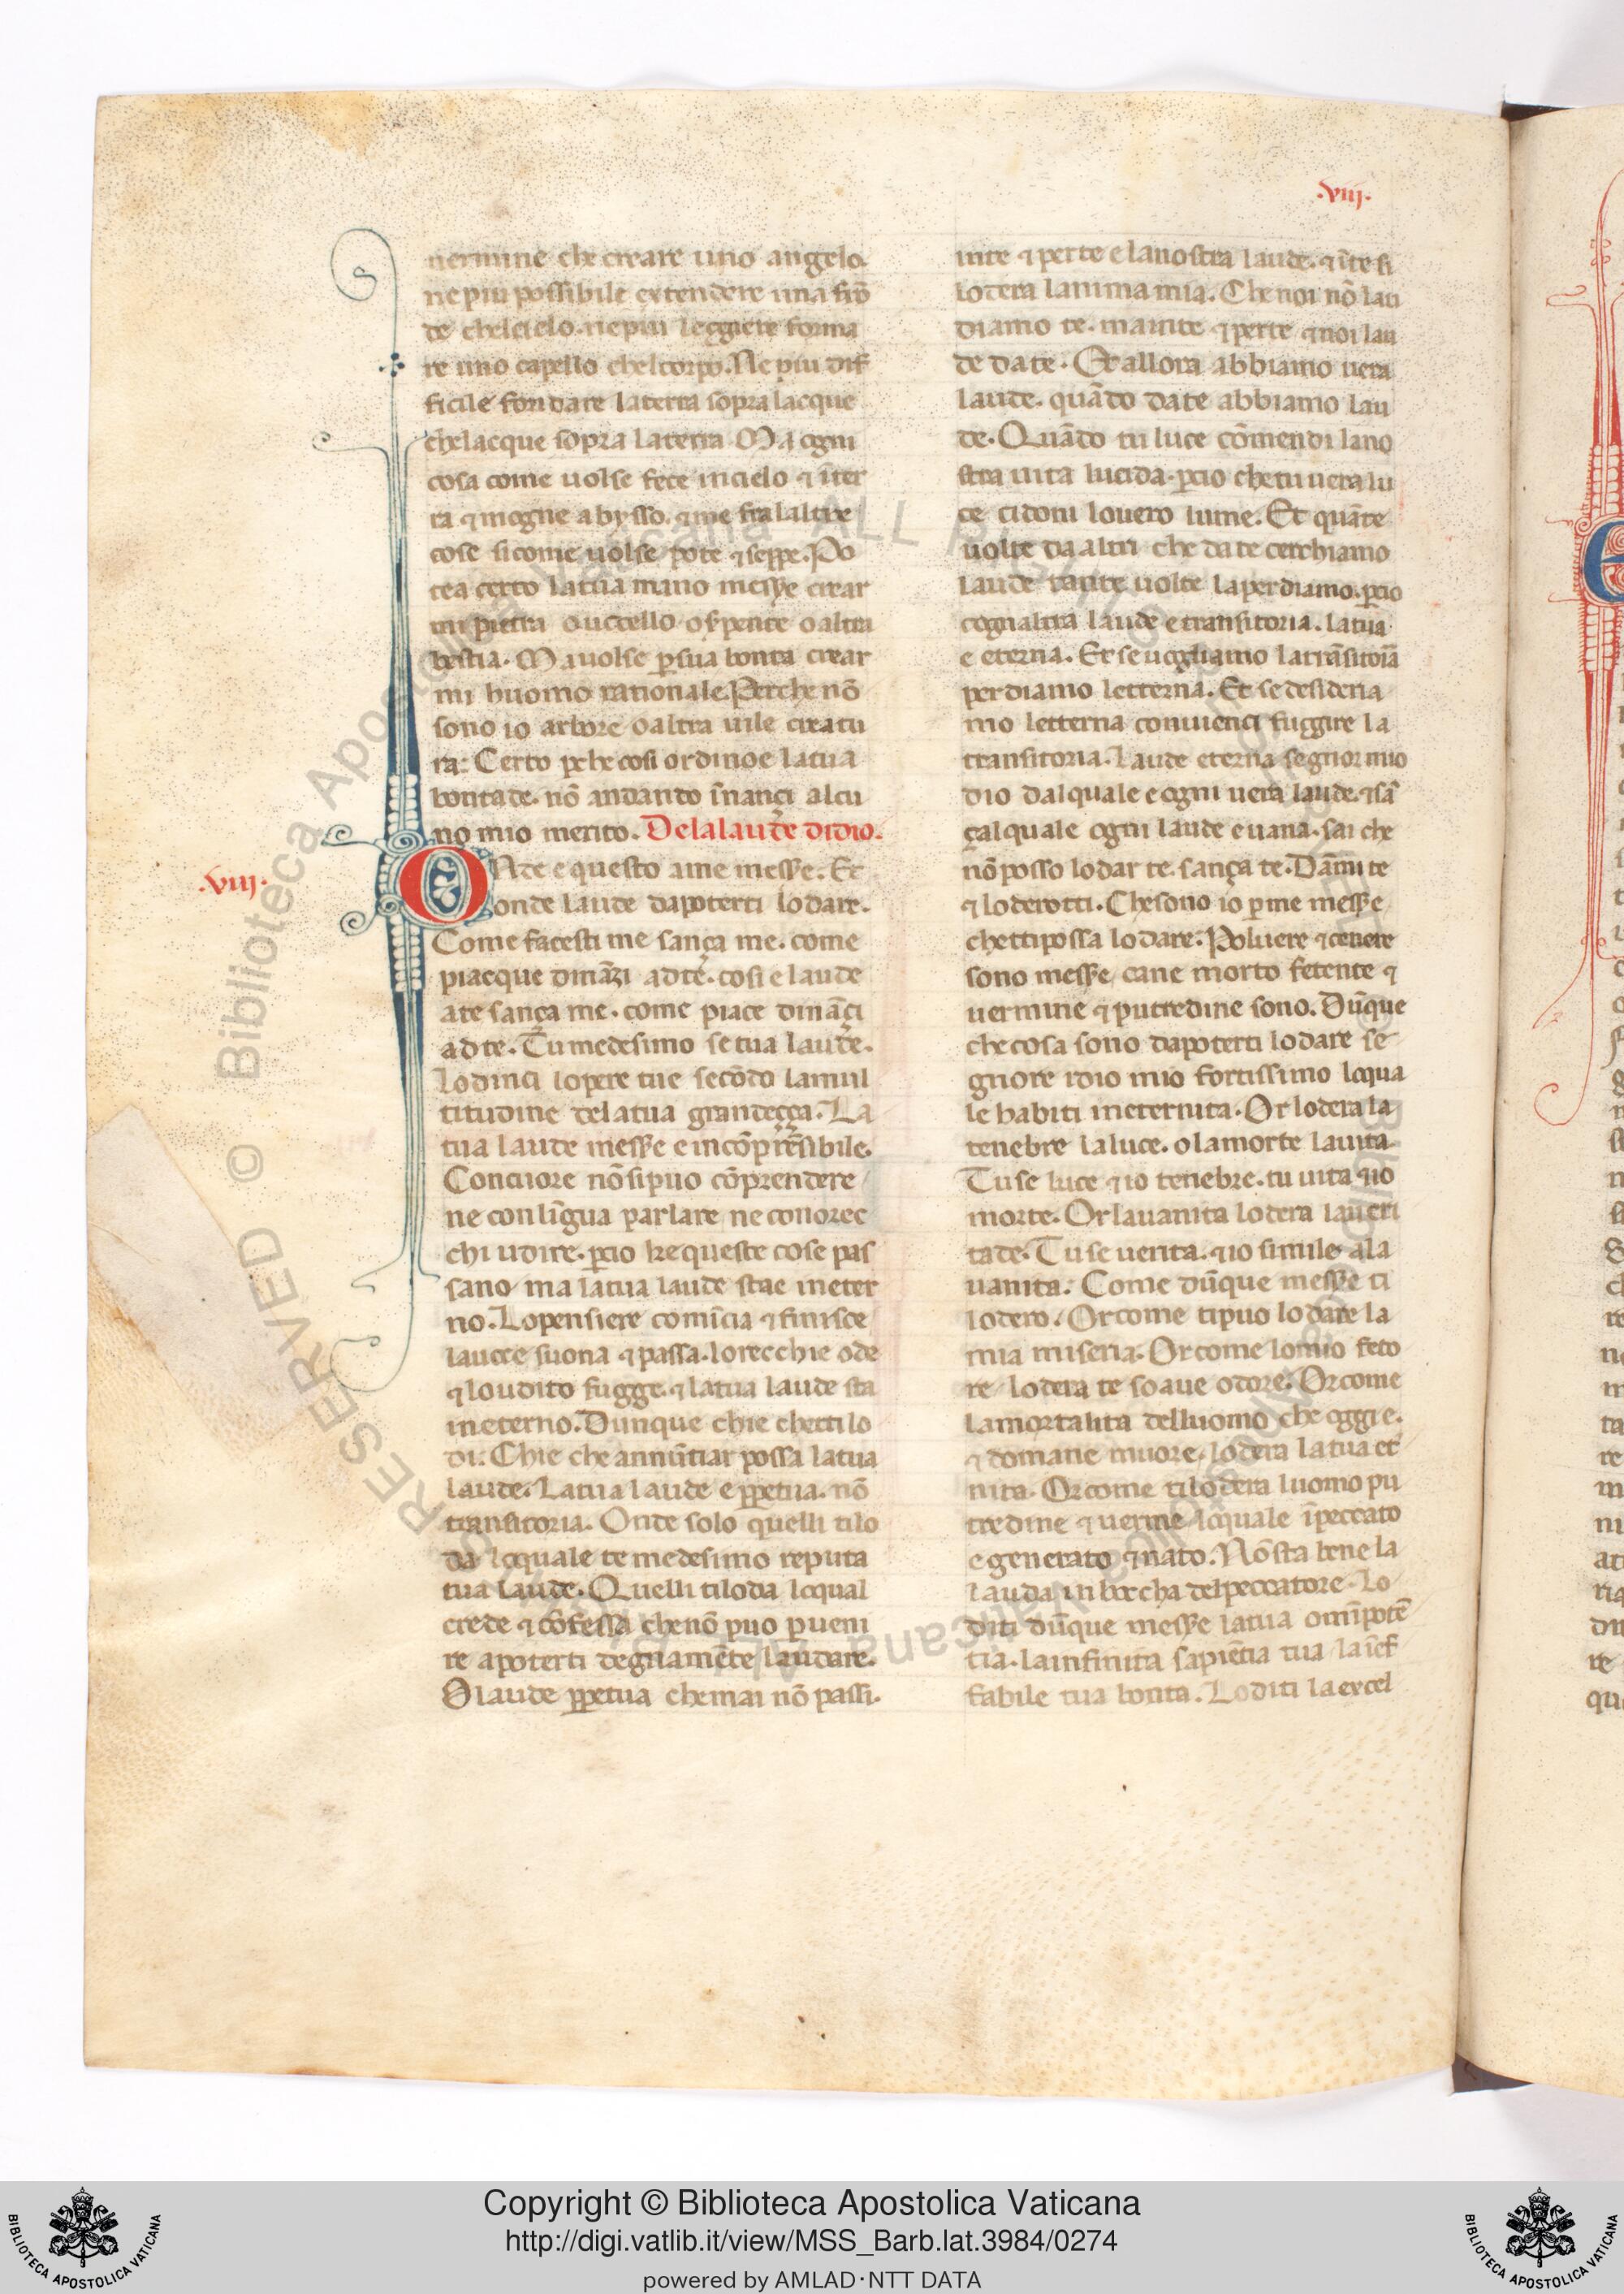 .viij.
uermine che creare uno angelo.
ne piu possibile extendere una frō
de chelcielo. ne piu leggiere forma
re uno capello chelcorpo. Ne piu dif
ficile fondare laterra sopra lacque
chelacque sopra laterra. Ma ogni
cosa come uolse fece incielo ⁊ īter
ra ⁊ inogne abysso. ⁊ me fralaltre
cose sicome uolse pote ⁊ seppe. Po
tea certo latua mano messye crear
mi pietra o uccello o sṗente o altra
bestia. Ma uolse ꝑsua bonta crear
mi huomo rationale. Perche nō
sono io arbore o altra uile creatu
ra: Certo ꝑche cosi ordinoe latua
bontade. nō andando īnançi alcu
no mio merito. Delalaude didio.
.viij.
ONde e questo ame messye. Et
onde laude dapoterti lodare.
Come facesti me sança me. come
piacque dināzi adte. cosi e laude
ate sança me. come piace dināçi
adte. Tu medesimo se tua laude.
Lodinci lopere tue secōdo lamul
titudine delatua grandeçça. La
tua laude messye e incōprēsibile.
Concuore nōsipuo cōprendere
ne con līgua parlare ne conorec
chi udire. ꝑcio ke queste cose pas
sano ma latua laude stae ineter
no. Lopensiere comīcia ⁊ finisce
lauoce suona ⁊ passa. lorecchie ode
⁊ loudito fugge. ⁊ latua laude sta
ineterno. Dunque chie chetti lo
di: Chie che annūtiar possa latua
laude. Latua laude e ꝑpetua. nō
transitoria. Onde solo quelli tilo
da loquale te medesimo reputa
tua laude. Quelli tiloda loqual
crede ⁊ cōfessa che nō puo ꝑueni
re apoterti degnamēte laudare.
O laude ꝑpetua che mai nō passi.
inte ⁊ perte e lanostra laude. ⁊ īte si
lodera lanima mia. Che noi nō lau
diamo te. ma inte ⁊ perte ⁊ noi lau
de da te. Et allora abbiamo uera
laude. quādo date abbiamo lau
de. Quādo tu luce cōmendi lano
stra uita lucida. ꝑcio che tu uera lu
ce cidoni louero lume. Et quāte
uolte da altri che da te cerchiamo
laude tante uolte la perdiamo. ꝑcio
cognaltra laude e transitoria. latua
e eterna. Et se uogliamo latrāsitoīa
perdiamo letterna. Et se desidera
mo letterna conuienci fuggire la
transitoria. Laude eterna segnor mio
dio dalquale e ogni uera laude. ⁊ sā
çalquale ogni laude e uana. sai che
nō posso lodar te. sança te. Dāmi te
⁊ loderotti. Che sono io ꝑ me messye
chettipossa lodare. Poluere ⁊ cenere
sono messye, cane morto fetente ⁊
uermine ⁊ putredine sono. Dūque
che cosa sono dapoterti lodare se
gnore idio mio fortissimo loqua
le habiti ineternita. Or lodera la
tenebre la luce. o lamorte lauita.
Tu se luce ⁊ io tenebre. tu uita ⁊ io
morte. Or lauanita lodera laueri
tade. Tu se uerita. ⁊ io simile ala
uanita: Come dūque messye ti
lodero: Or come tipuo lodare la
mia miseria. Or come lomio feto
re lodera te soaue odore. Or come
lamortalita delluomo che oggi e.
⁊ domane muore. lodera latua et
nita. Or come tilodera luomo pu
tredine ⁊ uerme loquale ī peccato
e generato ⁊ nato. Nō sta bene la
lauda in boccha delpeccatore. Lo
diti dūque messye latua omīpotē
tia. lainfinita sapiētia tua la īef
fabile tua bonta. Loditi la excel
Copyright © Biblioteca Apostolica Vaticana
http://digi.vatlib.it/view/MSS_Barb.lat.3984/0274
powered by AMLAD·NTT DATA